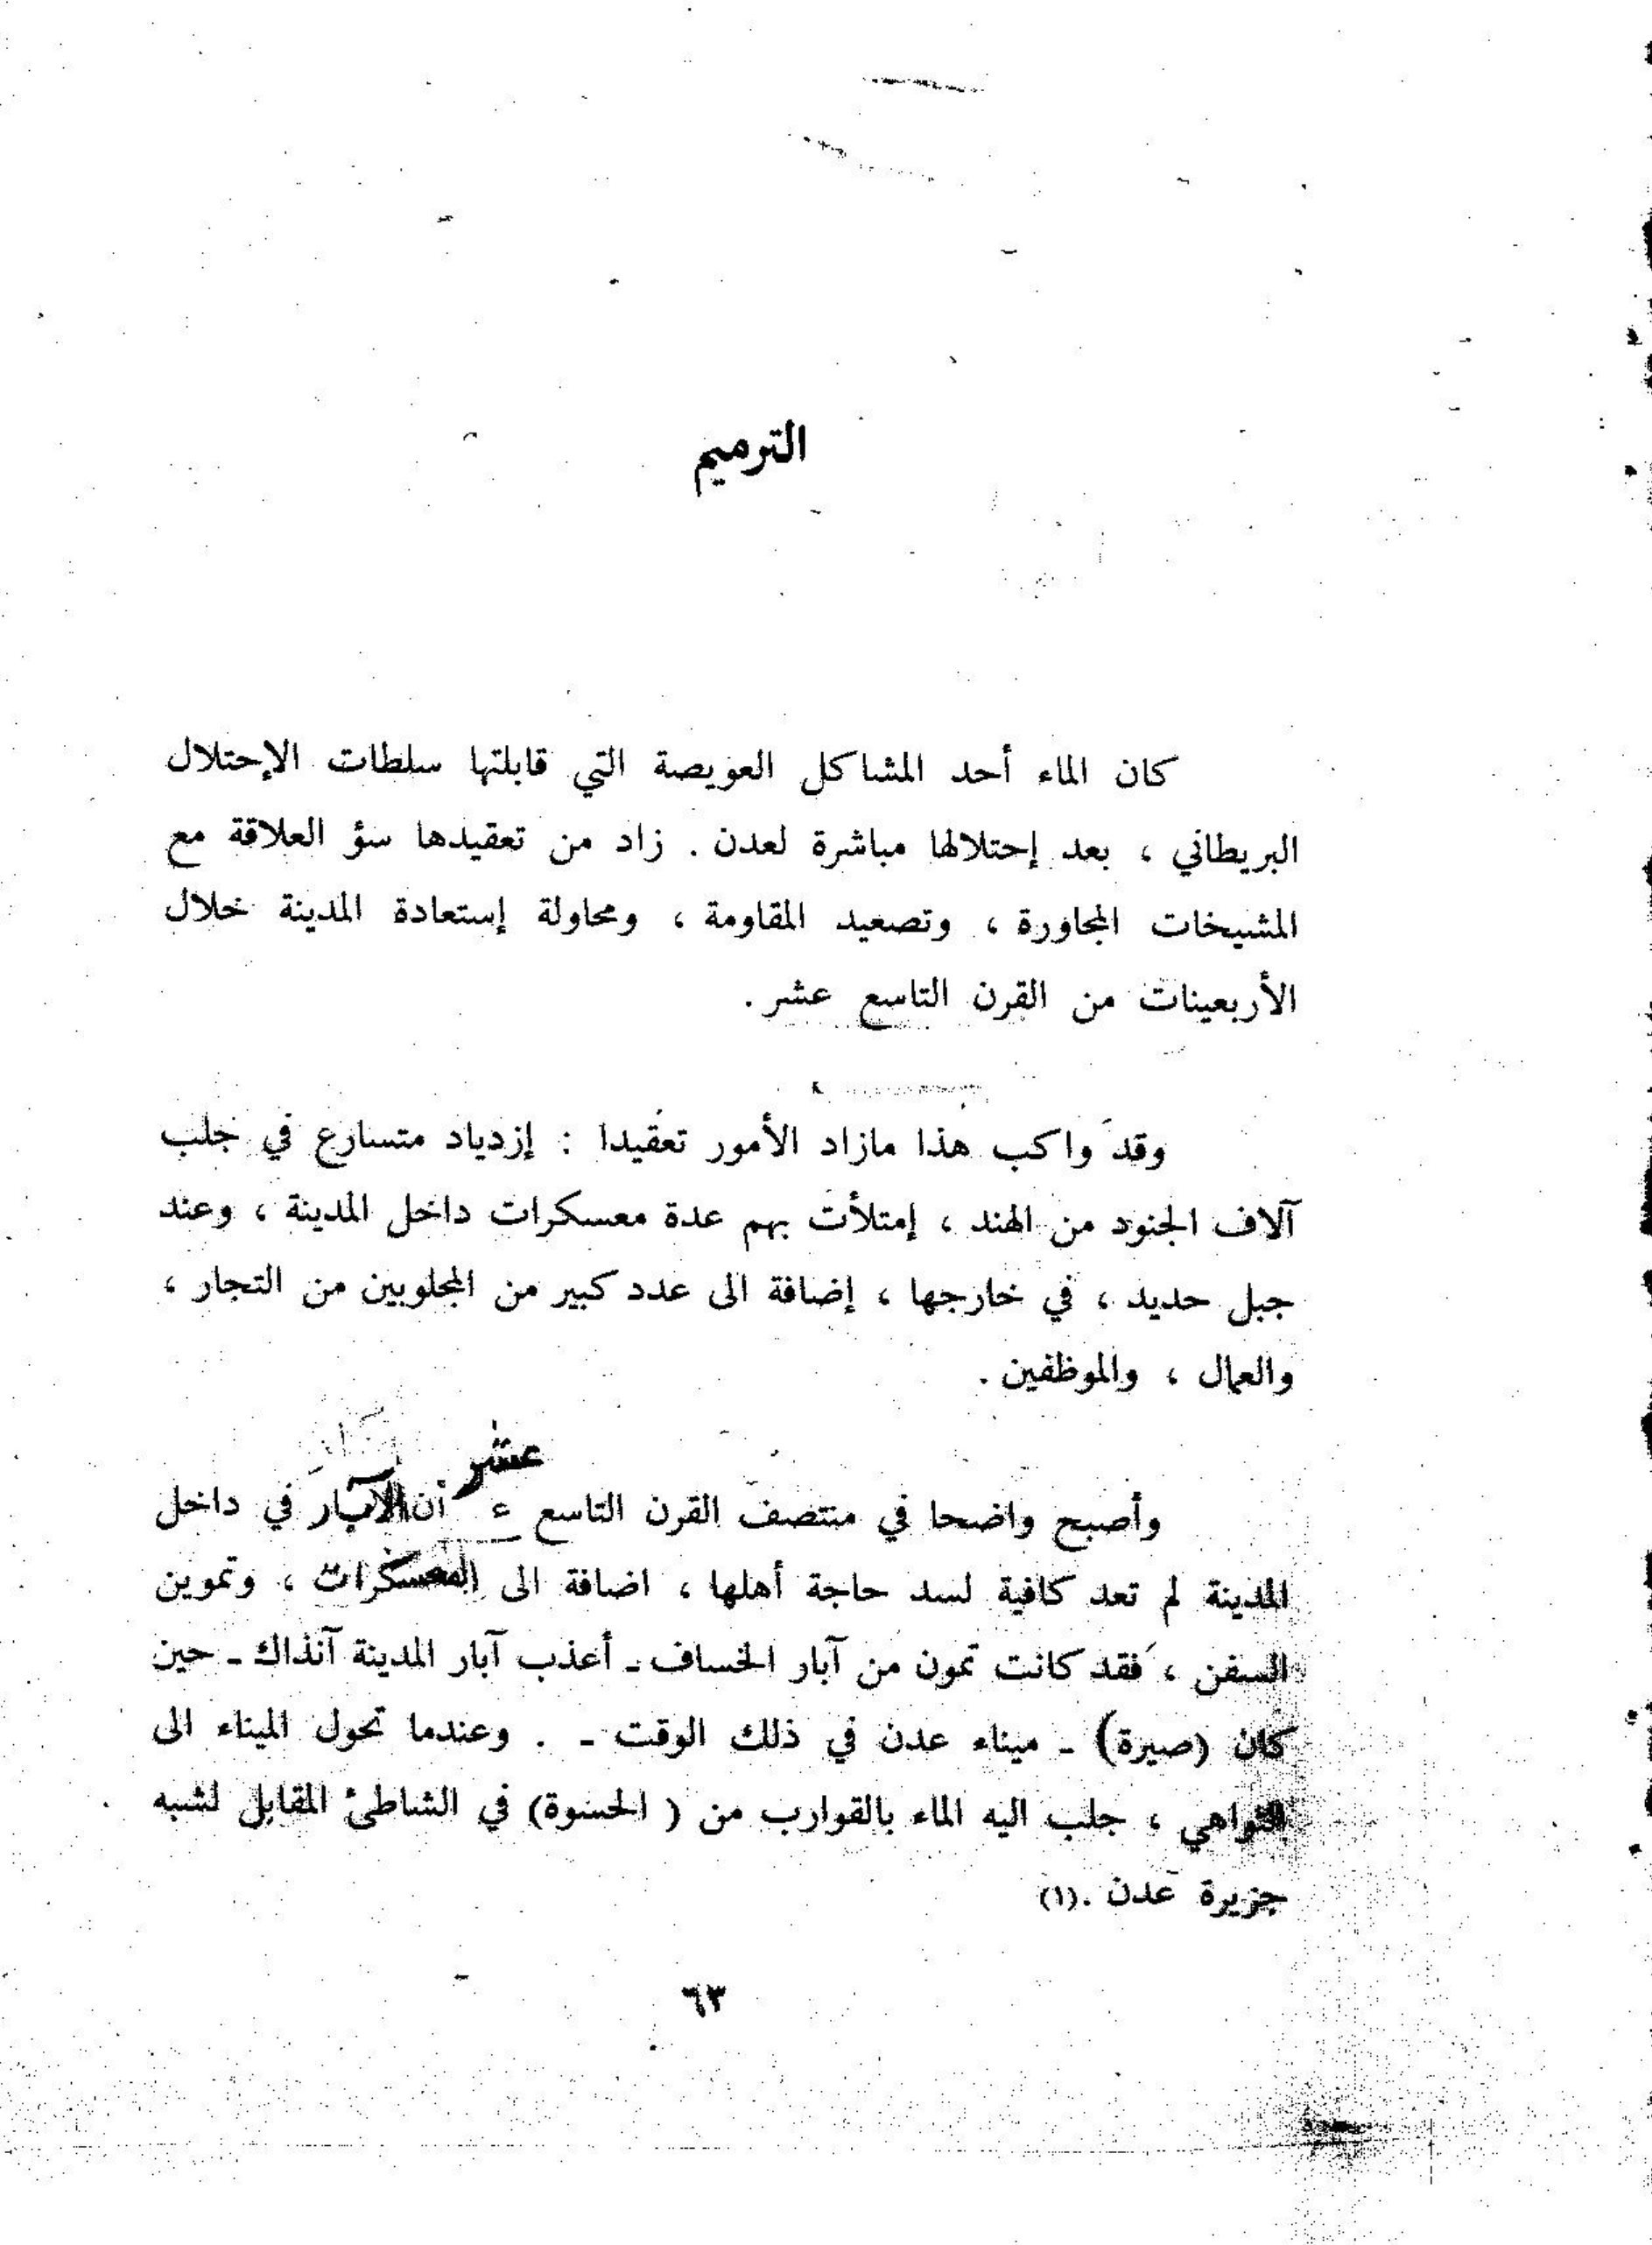 الترميم
كان الماء أحد المشاكل العويصة التي قابلتها سلطات الإحتلال
البريطاني ، بعد إحتلالها مباشرة لعدن . زاد من تعقيدها سؤ العلاقة مع
المشيخات المجاورة ، وتصعيد المقاومة ، ومحاولة إستعادة المدينة خلال
الأربعينات من القرن التاسع عشر .
وقد واكب هذا مازاد الأمور تعقيدا : إزدياد متسارع في جلب
آلاف الجنود من الهند ، إمتلأت بهم عدة معسكرات داخل المدينة ، وعند
جبل حديد ، في خارجها ، إضافة الى عدد كبير من المجلوبين من التجار ،
والعمال ، والموظفين .
وأصبح واضحا في منتصف القرن التاسع عشر أن الآبار في داخل
المدينة لم تعد كافية لسد حاجة أهلها ، اضافة الى المعسكرات ، وتموين
السفن ، فقد كانت تمون من آبار الخساف ـ أعذب آبار المدينة آنذاك ـ حين
كان (صيرة) ـ ميناء عدن في ذلك الوقت ـ . وعندما تحول الميناء الى
التواهي ، جلب اليه الماء بالقوارب من ( الحسوة) في الشاطئ المقابل لشبه
جزيرة عدن .(١)
٦٣